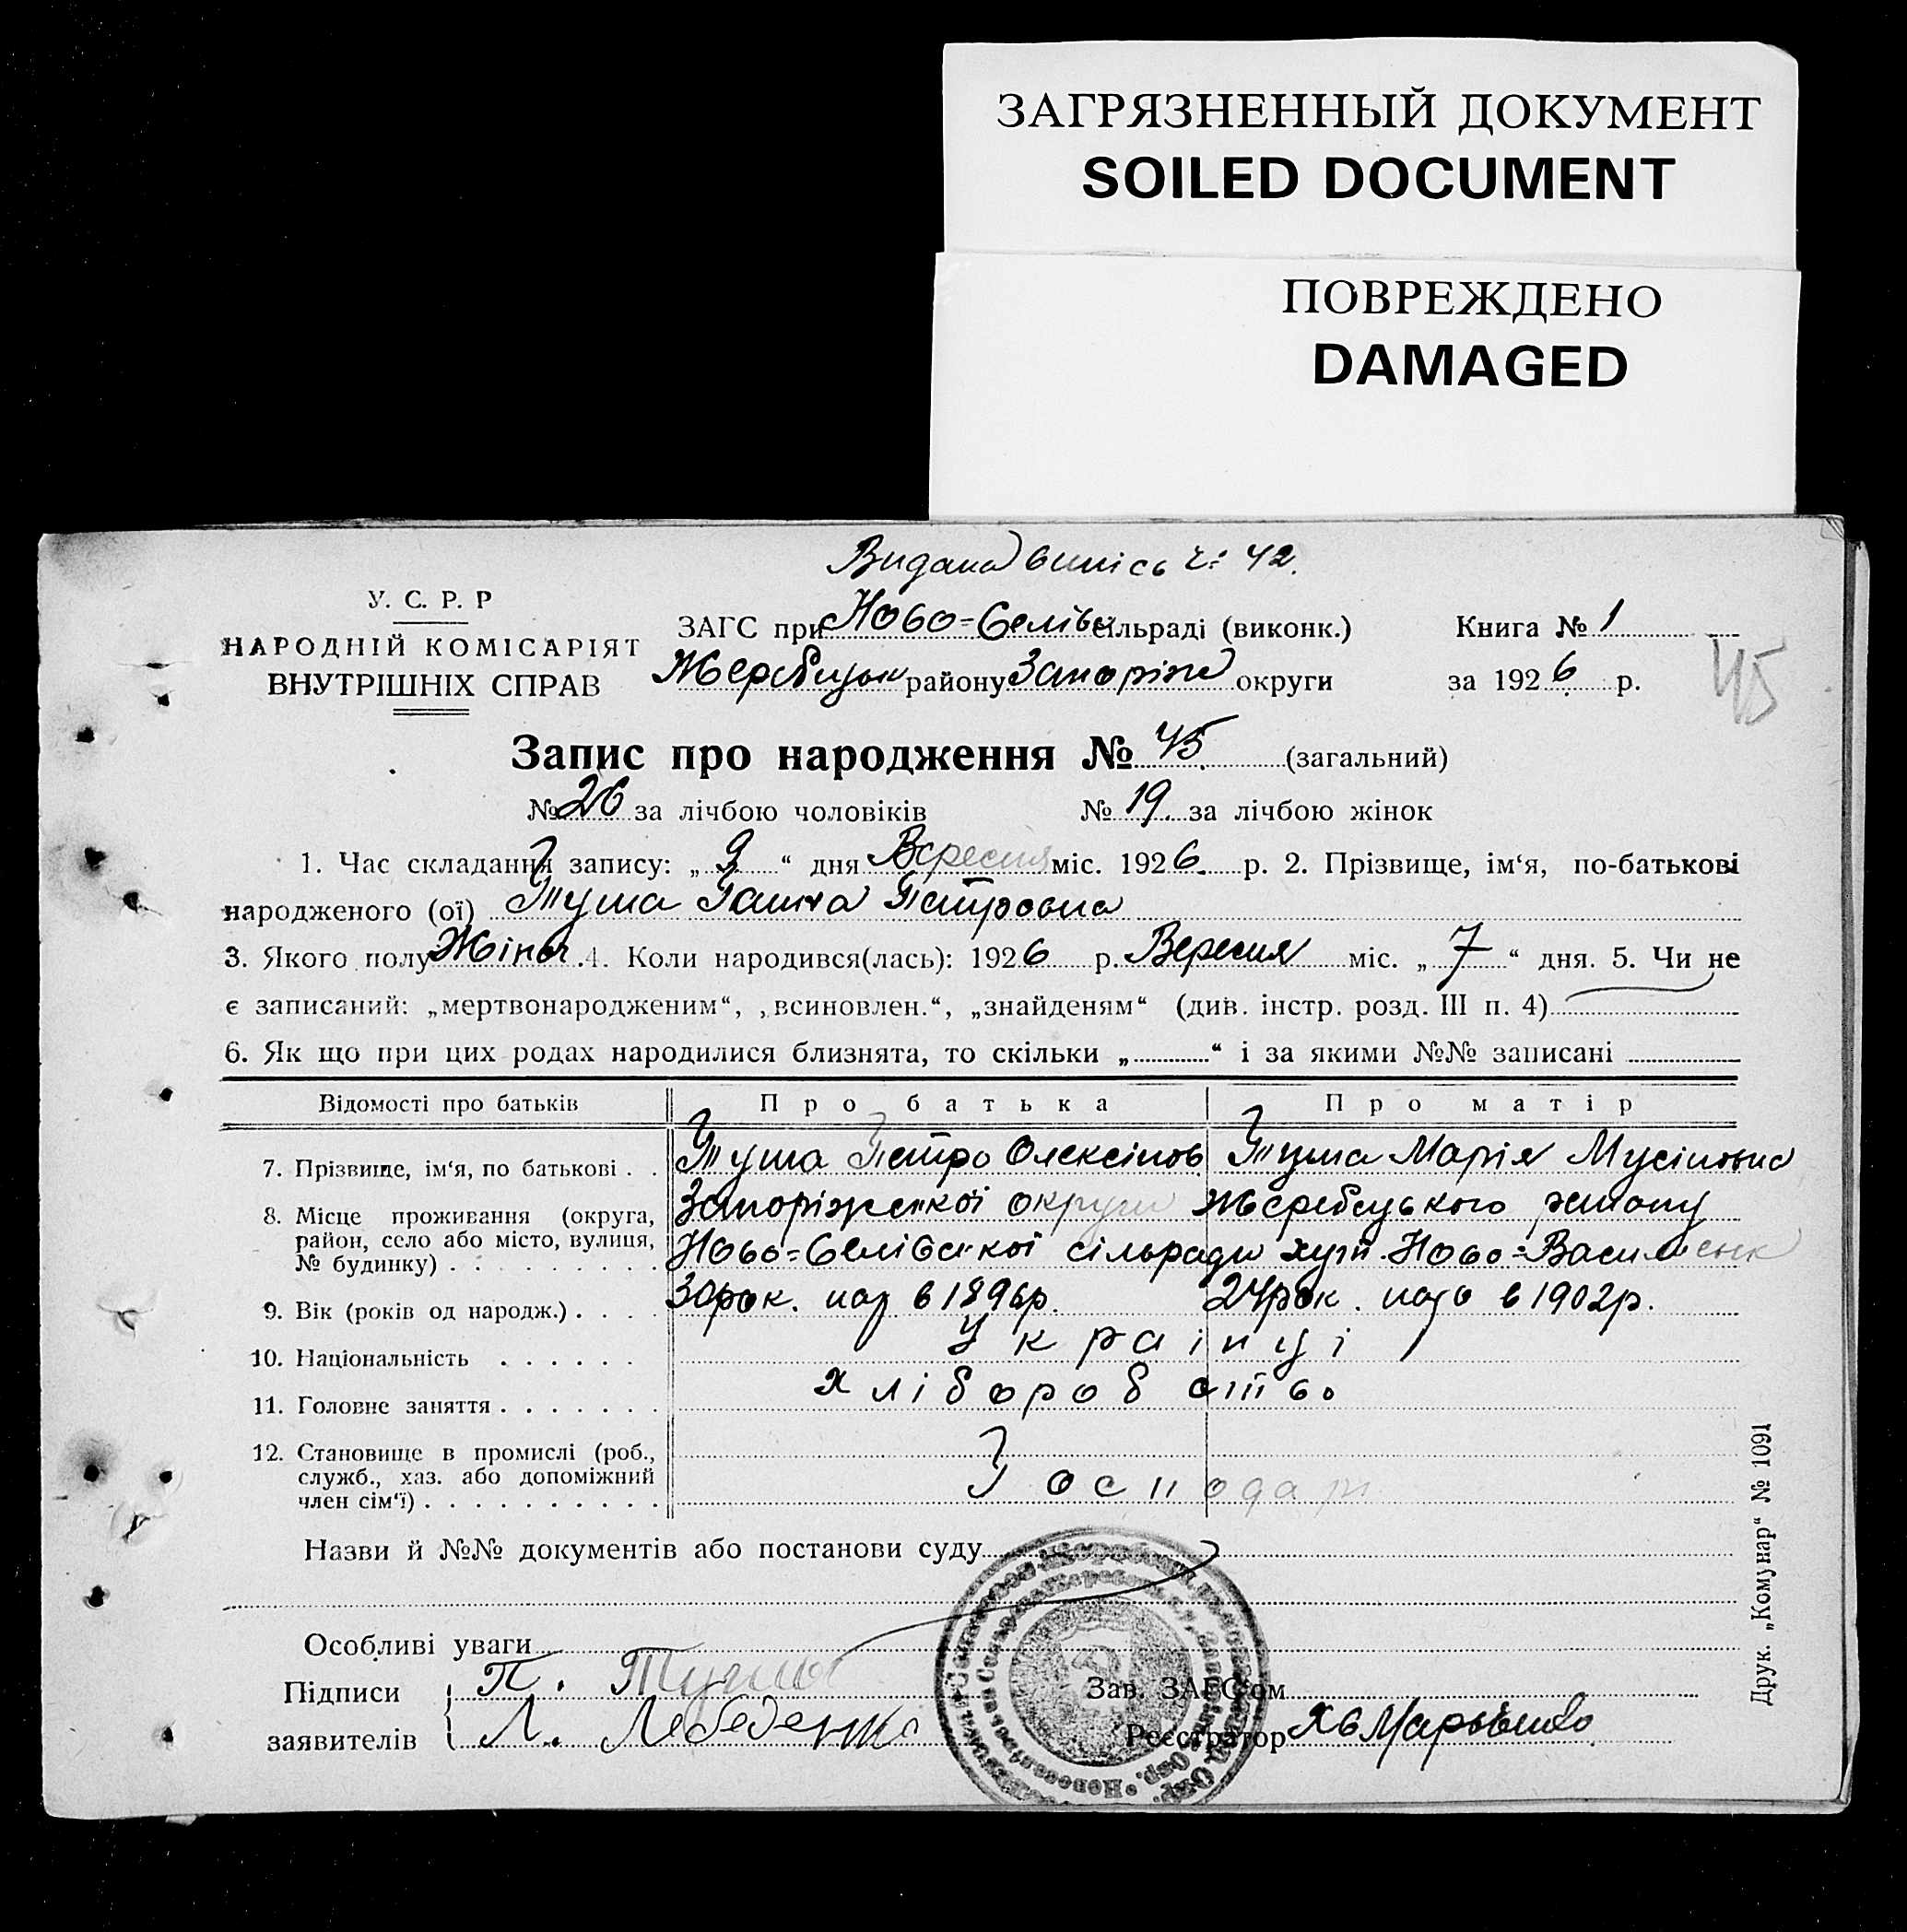 ЗАГРЯЗНЕННЫЙ ДОКУМЕНТ
SOILED DOCUMENT
ПОВРЕЖДЕНО
DAMAGED
Видана випісь ч: 42.
У. С. Р. Р
НАРОДНІЙ КОМІСАРІЯТ
ВНУТРІШНІХ СПРАВ
ЗАГС при Ново=Селівс сільраді (виконк.)
Жеребецьк району Запоріж округи
Книга № 1
за 1926 р.
45
Запис про народження № 45. (загальний)
№ 26 за лічбою чоловіків № 19. за лічбою жінок
1. Час складання запису: „ 9 “ дня Вересня міс. 1926. р. 2. Прізвище, ім‘я, по-батькові
народженого (ої) Туша Ганна Петровна
3. Якого полу Жіноч. 4. Коли народився(лась): 1926 р. Вересня міс. „ 7 “ дня. 5. Чи не
є записаний: „мертвонародженим“, „всиновлен.“, „знайденям“ (див. інстр. розд. III п. 4)
6. Як що при цих родах народилися близнята, то скільки „ “ і за якими №№ записані
Відомості про батьків Про батька Про матір
7. Прізвище, ім‘я, по батькові . . Туша Петро Олексійов Туша Марія Мусіповна
8. Місце проживання (округа, район, село або місто, вулиця, № будинку) Запоріжської округи Жеребецького району
Ново=Селівської сільради хут. Ново=Василівськ
9. Вік (років од народж.) . . . . 30 рок. нар в 1896р. 24 рок. нар в 1902р.
10. Національність . . . . . . Українці
11. Головне заняття . . . . . . . хліборобство
12. Становище в промислі (роб., служб., хаз. або допоміжний член сім‘ї) . . . . . . . . . . Господарі
Назви й №№ документів або постанови суду
Особливі уваги
Підписи заявителів П. Туша
Л. Лебеденко
Зав. ЗАГС‘ом
Реєстратор
Друк. „Комунар“ № 1091